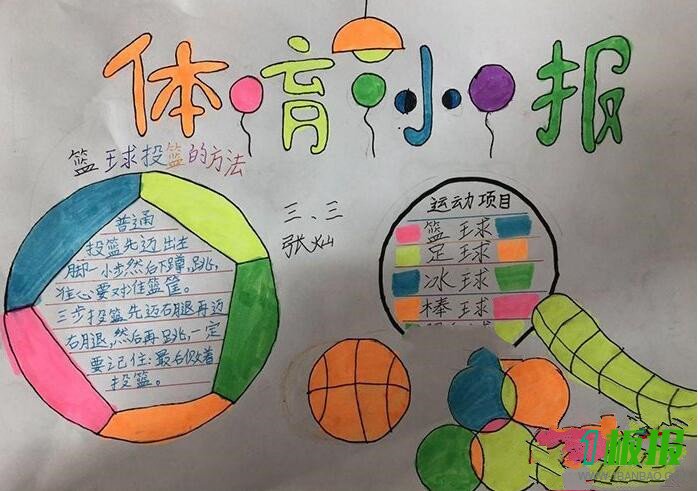 体育小报
篮球投篮的方法
普通
投篮先迈出左
脚一小步然后下蹲,跳,
准心要对准篮筐。
三步投篮先迈右腿再迈
右腿,然后再跳,一定
要记住:最后收着
投篮。
三、三
张灿
运动项目
篮球
足球
冰球
棒球
板报